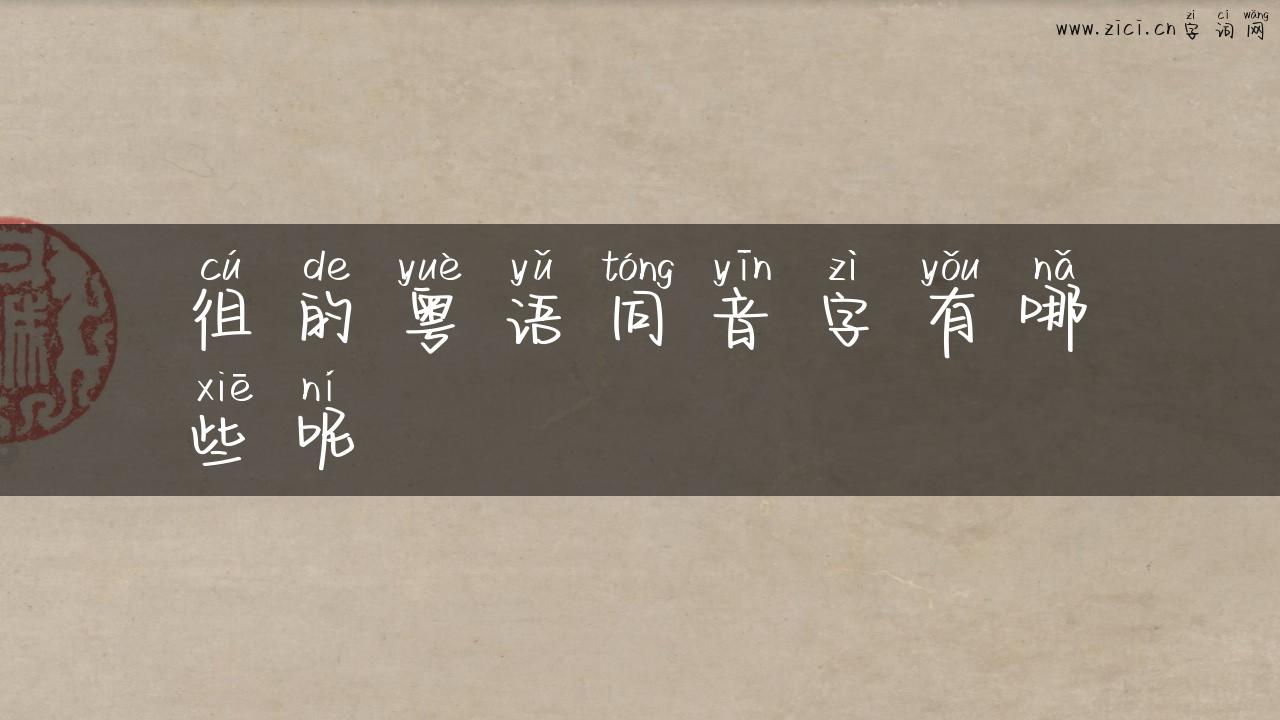 zì cí wǎng
www.zici.cn 字词网
cú de yuè yǔ tóng yīn zì yǒu nǎ
徂的粤语同音字有哪
xiē ní
些呢